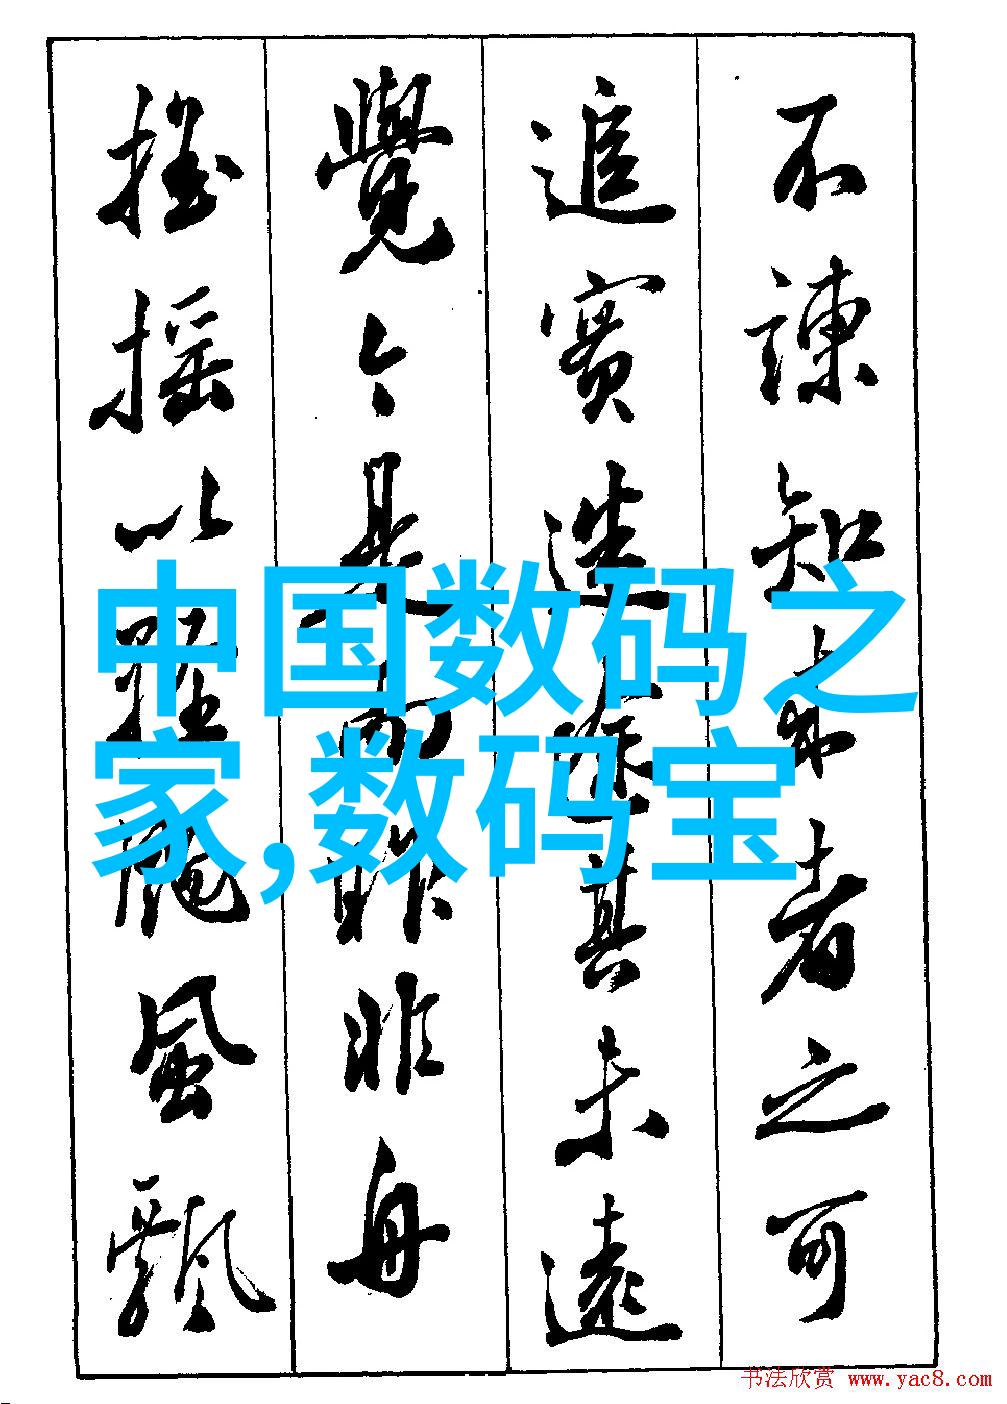 不諫知来者之可
追實迷途其未遠
覺今是而昨非舟
摇摇以輕颺風飄
中国数码之
家,数码宝
书法欣赏 www.yac8.com